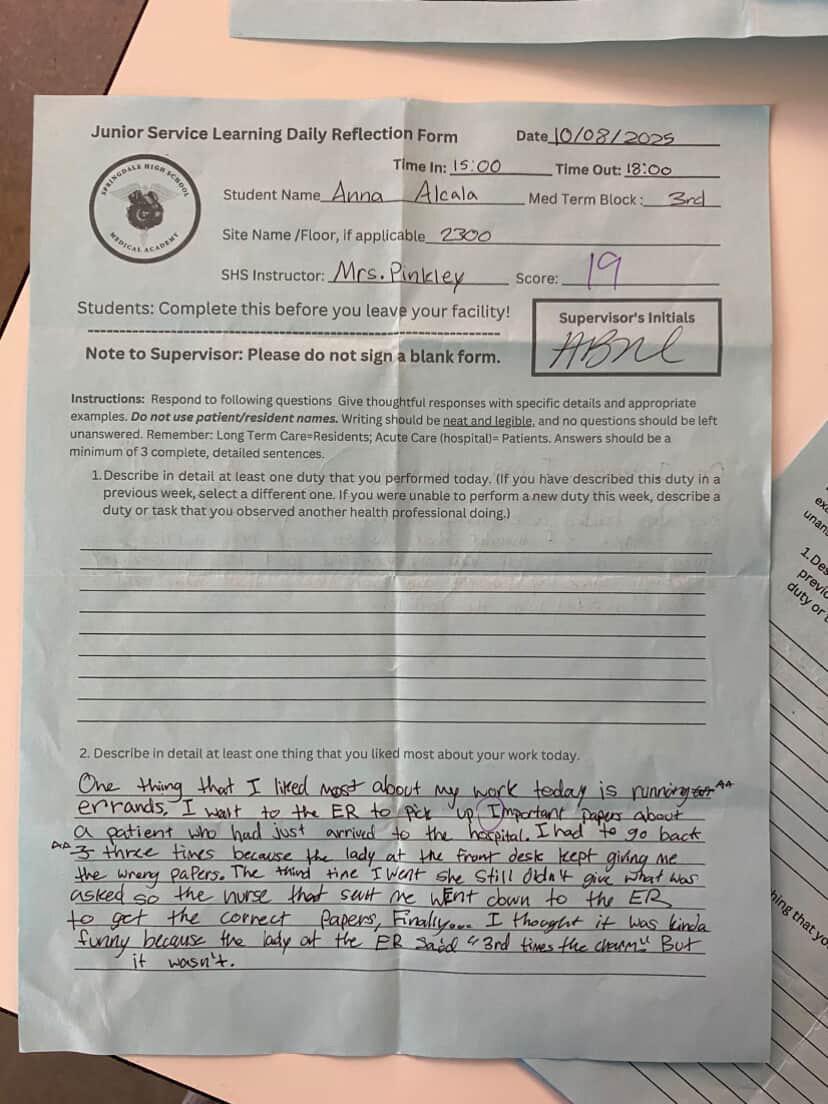 Junior Service Learning Daily Reflection Form
Date 10/08/2025
Time In: 15:00 Time Out: 18:00
SPRINGDALE HIGH SCHOOL
MEDICAL ACADEMY
Student Name Anna Alcala Med Term Block: 3rd
Site Name /Floor, if applicable 2300
SHS Instructor: Mrs. Pinkley Score: 19
Students: Complete this before you leave your facility!
Supervisor's Initials
Note to Supervisor: Please do not sign a blank form.
Instructions: Respond to following questions Give thoughtful responses with specific details and appropriate
examples. Do not use patient/resident names. Writing should be neat and legible, and no questions should be left
unanswered. Remember: Long Term Care=Residents; Acute Care (hospital)= Patients. Answers should be a
minimum of 3 complete, detailed sentences.
1. Describe in detail at least one duty that you performed today. (If you have described this duty in a
previous week, select a different one. If you were unable to perform a new duty this week, describe a
duty or task that you observed another health professional doing.)
2. Describe in detail at least one thing that you liked most about your work today.
One thing that I liked most about my work today is running AA
errands. I wait to the ER to pick up Important papers about
a patient who had just arrived to the hospital. I had to go back
AA 3 three times because the lady at the front desk kept giving me
the wrong papers. The third time I went she still didn't give what was
asked so the nurse that sent me went down to the ER
to get the correct papers, Finally... I thought it was kinda
funny because the lady at the ER said "3rd times the charm" But
it wasn't.
exa
unans
1. Des
previo
duty or t
hing that yo